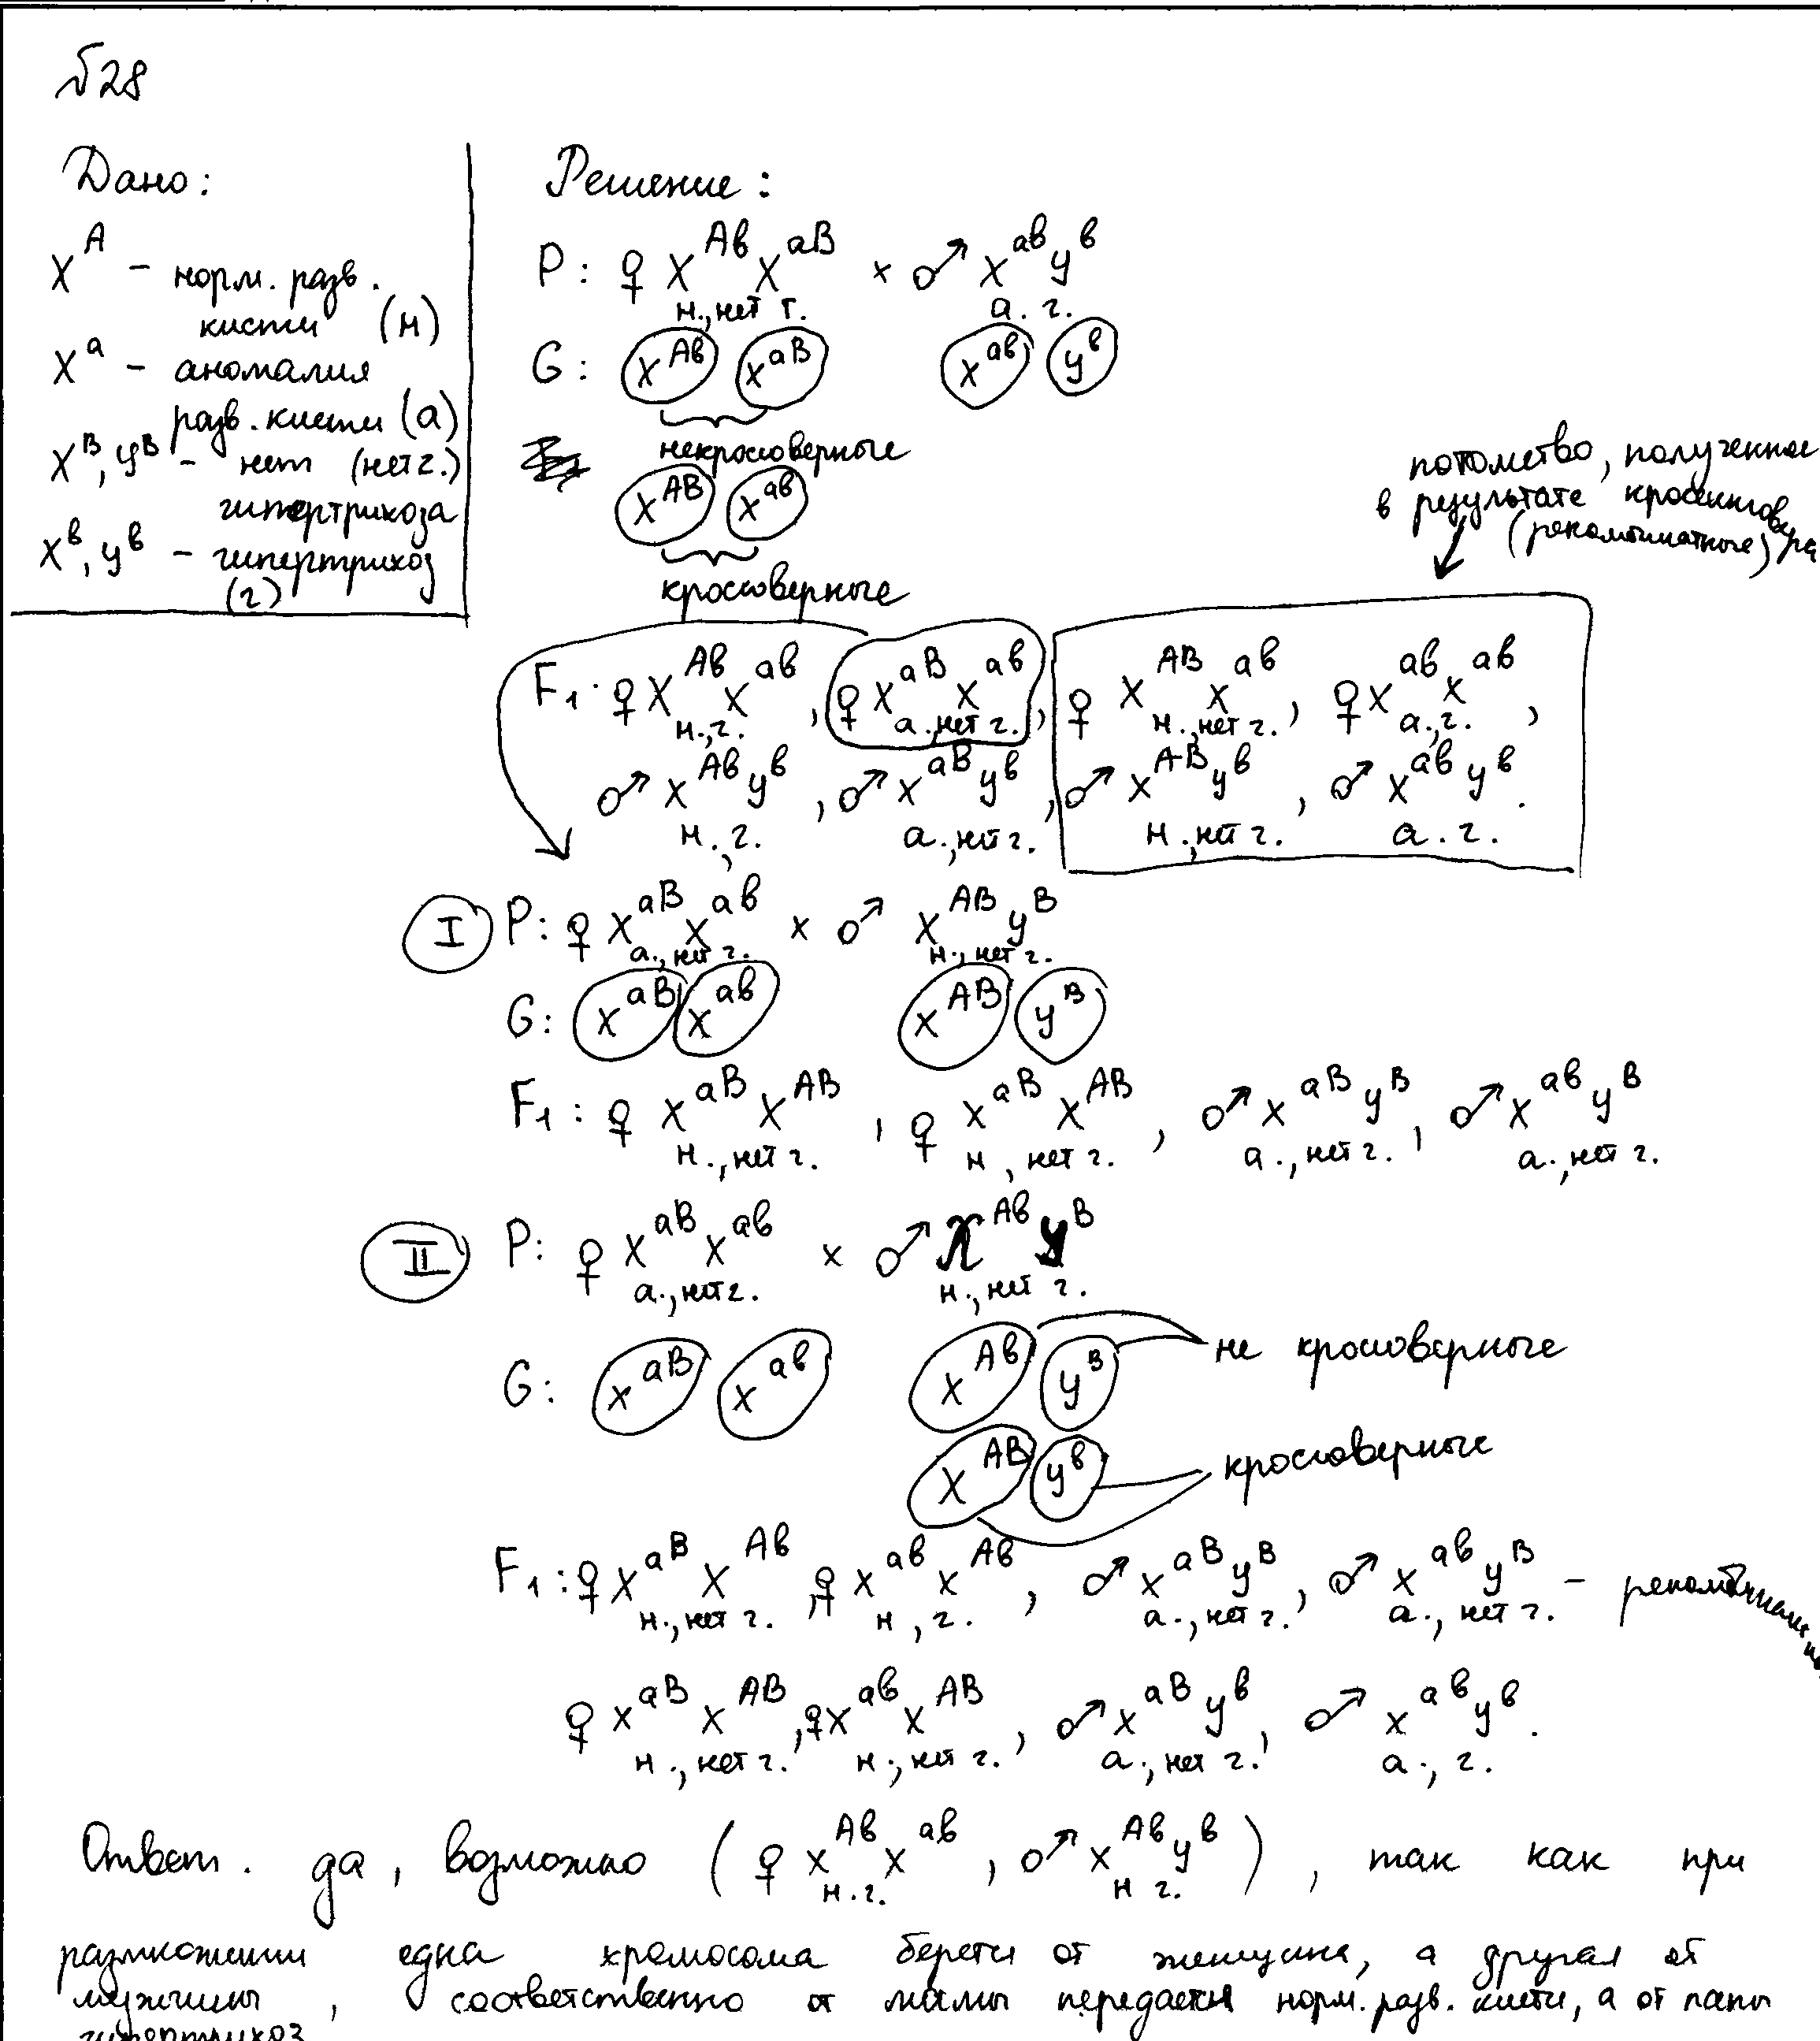 №28
Дано:
X^A – норм. разв.
кисти (н)
X^a – аномалия
разв. кисти (а)
X^B, y^B – нет (нет г.)
гипертрихоза
X^b, y^b – гипертрихоз
(г)
Решение:
P: ♀ X^Ab X^aB × ♂ X^ab y^b
н., нет г. а. г.
G: X^Ab X^aB X^ab y^b
некроссоверные
X^AB X^ab
кроссоверные
потомство, полученное
в результате кроссинговера
(рекомбинатные)
F1: ♀ X^Ab X^ab, ♀ X^aB X^ab, ♀ X^AB X^ab, ♀ X^ab X^ab,
н., г. а., нет г. н., нет г. а., г.
♂ X^Ab y^b, ♂ X^aB y^b, ♂ X^AB y^b, ♂ X^ab y^b.
н., г. а., нет г. н., нет г. а. г.
I P: ♀ X^aB X^ab × ♂ X^AB y^B
а., нет г. н., нет г.
G: X^aB X^ab X^AB y^B
F1: ♀ X^aB X^AB, ♀ X^aB X^AB, ♂ X^aB y^B, ♂ X^ab y^B
н., нет г. н, нет г. а., нет г. а., нет г.
II P: ♀ X^aB X^ab × ♂ X^Ab y^B
а., нет г. н., нет г.
G: X^aB X^ab X^Ab y^B не кроссоверные
X^AB y^b кроссоверные
F1: ♀ X^aB X^Ab, ♀ X^ab X^Ab, ♂ X^aB y^B, ♂ X^ab y^B –
н., нет г. н, г. а., нет г. а., нет г.
♀ X^aB X^AB, ♀ X^ab X^AB, ♂ X^aB y^b, ♂ X^ab y^b.
н., нет г. н., нет г. а., нет г. а., г.
Ответ. да, возможно (♀ X^Ab X^ab, ♂ X^Ab y^b), так как при
н. г. н г.
размножении одна хромосома берется от женщины, а другая от
мужчины, соответственно от мамы передается норм. разв. кисти, а от папы
гипертрихоз